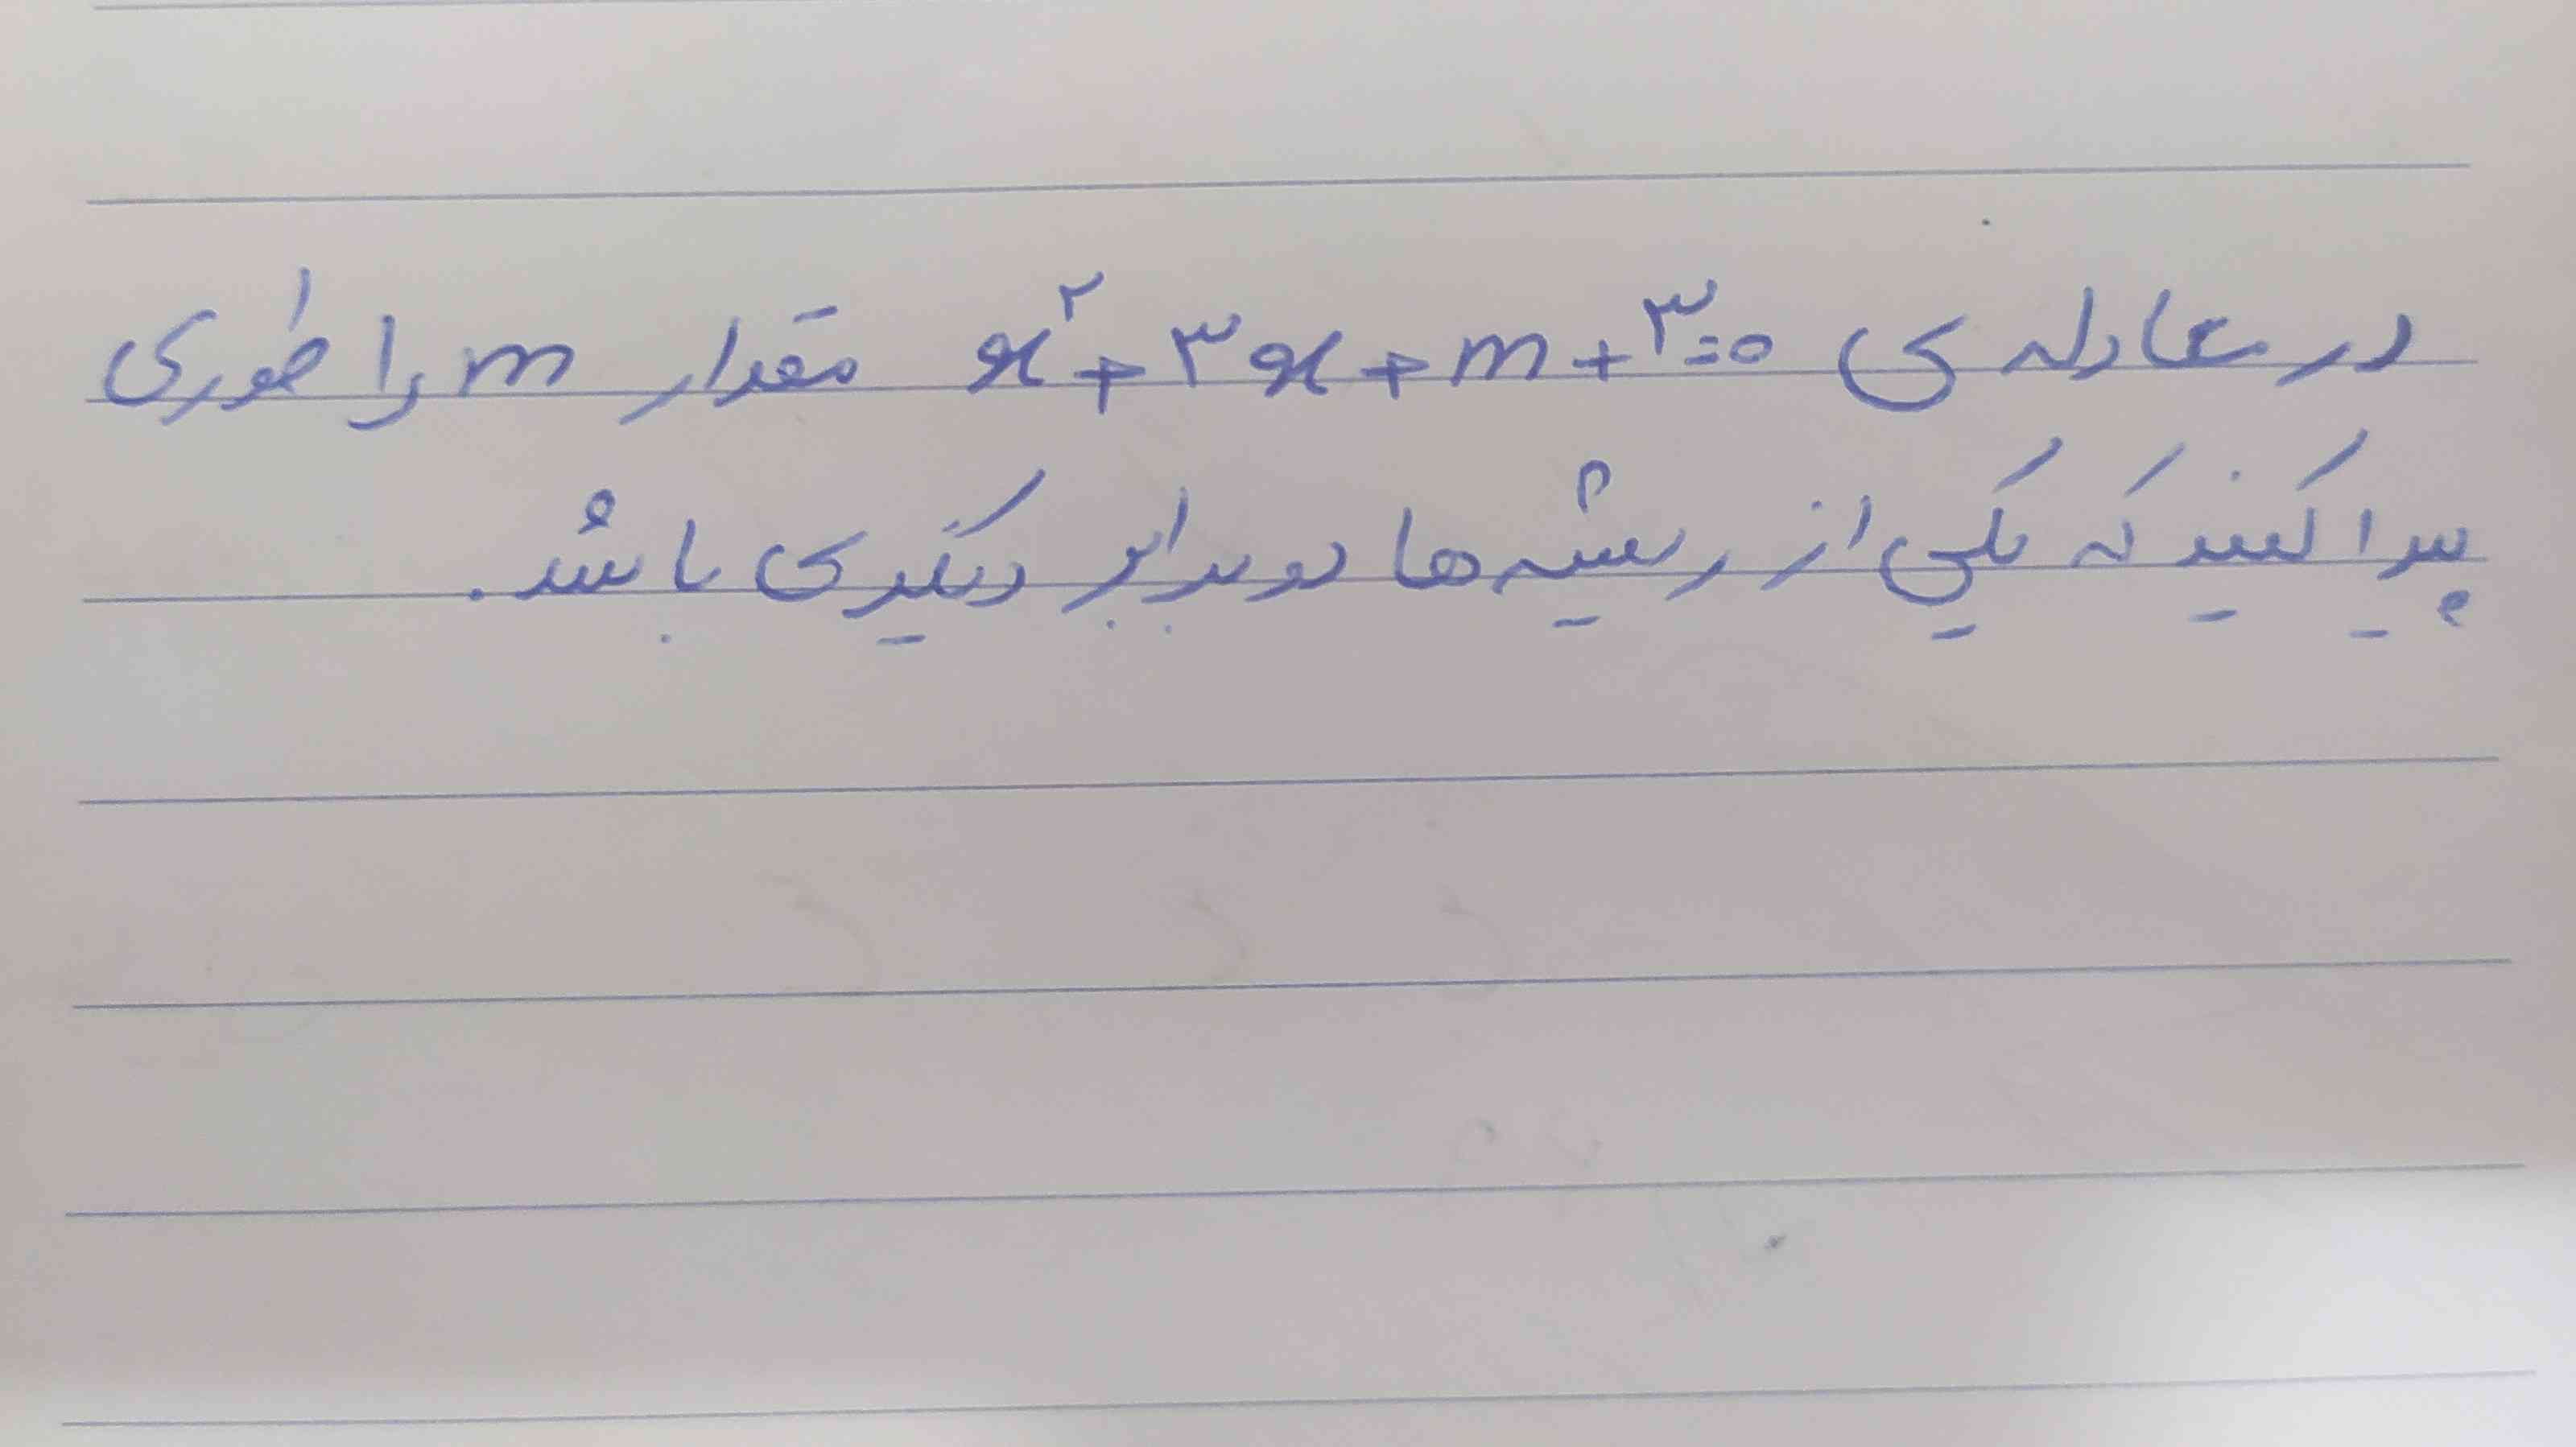 در معادله ی x²+۳x+m+۳=۰ مقدار m را طوری
پیدا کنید که یکی از ریشه ها دو برابر دیگری باشد.